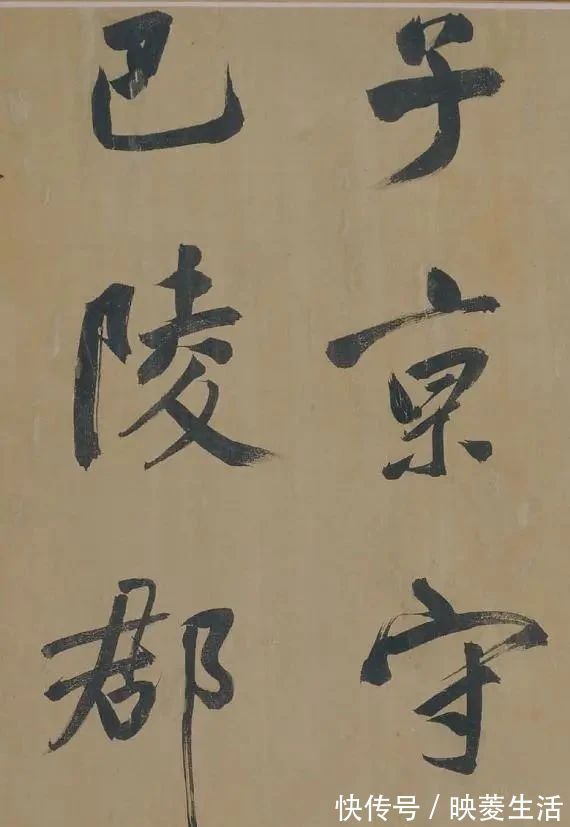 子京守
巴陵郡
快传号/映菱生活